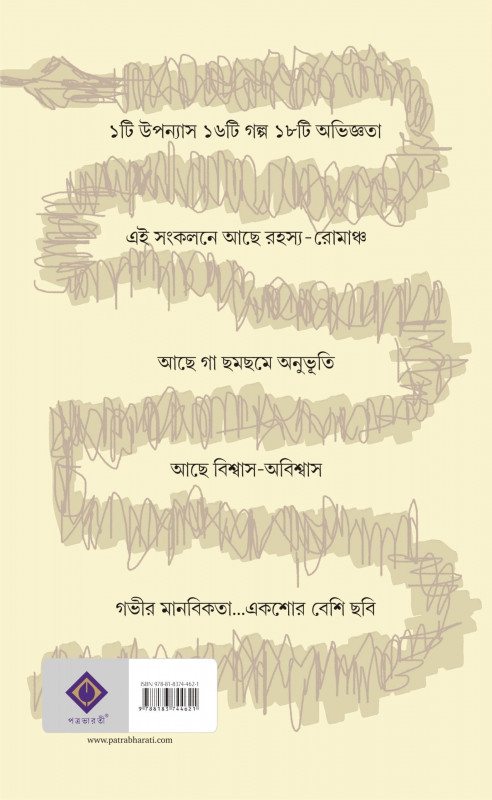 ১টি উপন্যাস ১৬টি গল্প ১৮টি অভিজ্ঞতা
এই সংকলনে আছে রহস্য-রোমাঞ্চ
আছে গা ছমছমে অনুভূতি
আছে বিশ্বাস-অবিশ্বাস
গভীর মানবিকতা...একশোর বেশি ছবি
ISBN 978-81-8374-462-1
9 788183 744621
পত্রভারতী®
www.patrabharati.com